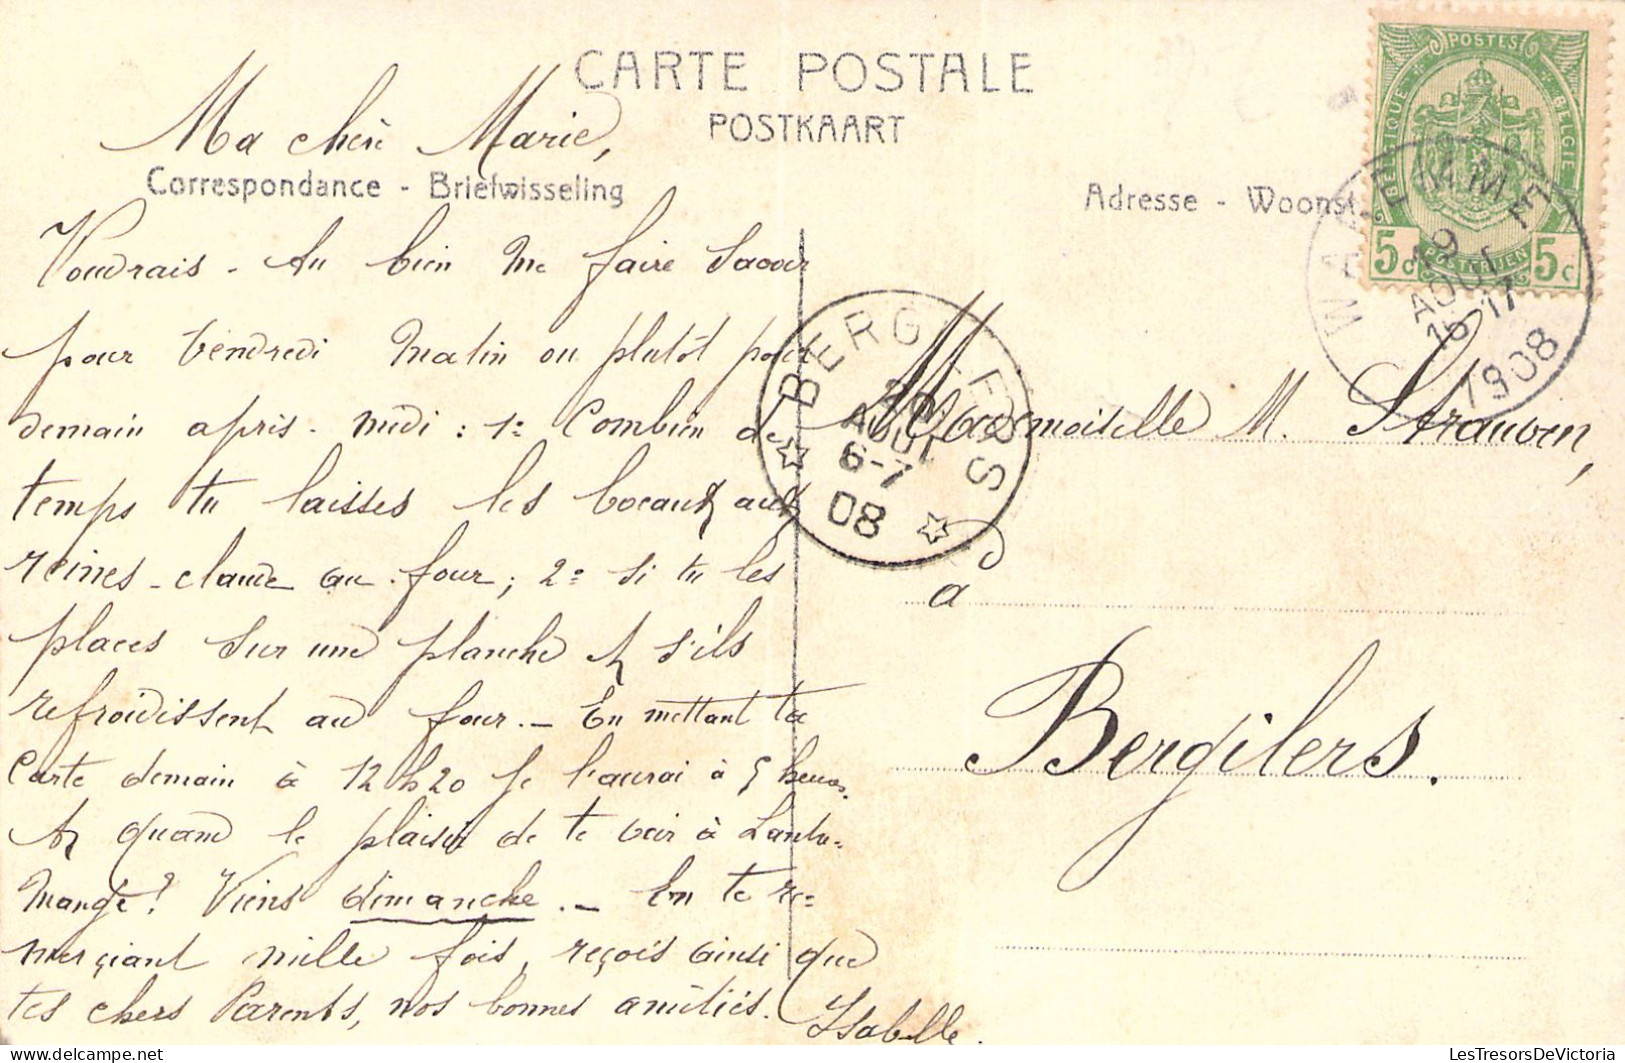 CARTE POSTALE
POSTKAART
Ma chère Marie,
Correspondance - Briefwisseling
Voudrais-tu bien me faire savoir
pour vendredi matin ou plutôt pour
demain après-midi : 1º Combien de
temps tu laisses les bocaux aux
reines-claude au four ; 2º si tu les
places sur une planche & s'ils
refroidissent au four. — En mettant ta
carte demain à 12 h 20 je l'aurai à 5 heures.
& quand le plaisir de te voir à Lantre-
mange ? Viens dimanche. — En te re-
merçiant mille fois, reçois ainsi que
tes chers Parents, nos bonnes amitiés.
Ysabelle.
Adresse - Woonst
Mademoiselle M. Strauven,
à
Bergilers.
POSTES
BELGIQUE
BELGIE
POSTERIJEN
5c 5c
WAREMME
19
AOUT
16-17
1908
BERG-LES
20
AOUT
6-7
08
LesTresorsDeVictoria